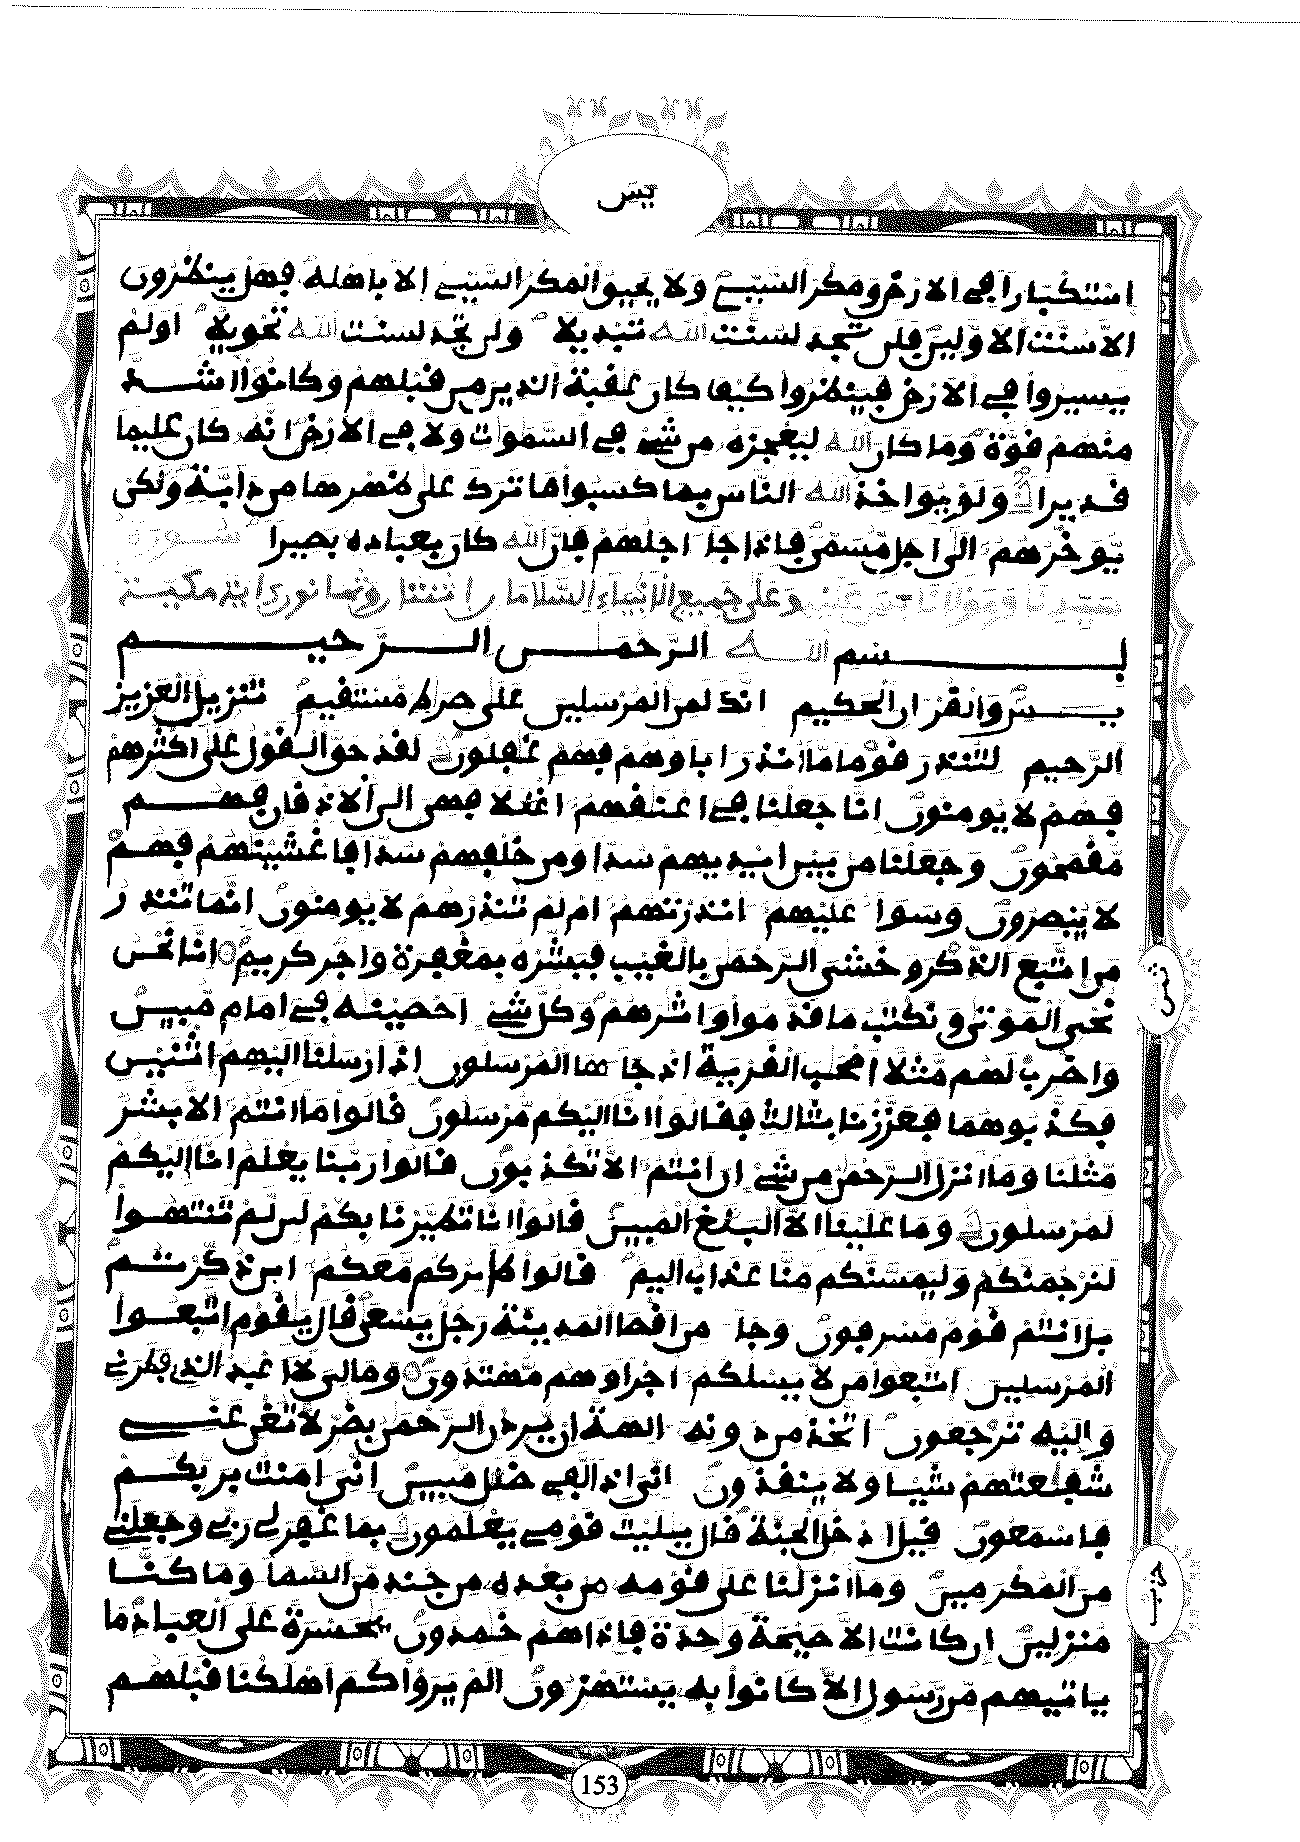 يس
استكبارا في الارض ومكر السيئ ولا يحيق المكر السيئ الا باهله فهل ينظرون
الا سنت الاولين فلن تجد لسنت الله تبديلا ولن تجد لسنت الله تحويلا اولم
يسيروا في الارض فينظروا كيف كان عقبة الذين من قبلهم وكانوا اشد
منهم قوة وما كان الله ليعجزه من شيء في السموت ولا في الارض انه كان عليما
قديرا ولو يواخذ الله الناس بما كسبوا ما ترك على ظهرها من دابة ولكن
يوخرهم الى اجل مسمى فاذا جا اجلهم فان الله كان بعباده بصيرا سورة
وعلى جميع الانبياء السلام
بسم الله الرحمن الرحيم
يس والقران الحكيم انك لمن المرسلين على صراط مستقيم تنزيل العزيز
الرحيم لتنذر قوما ما انذر اباوهم فهم غفلون لقد حق القول على اكثرهم
فهم لا يومنون انا جعلنا في اعنقهم اغللا فهي الى الاذقان فهم
مقمحون وجعلنا من بين ايديهم سدا ومن خلفهم سدا فاغشينهم فهم
لا يبصرون وسوا عليهم انذرتهم ام لم تنذرهم لا يومنون انما تنذر
من اتبع الذكر وخشي الرحمن بالغيب فبشره بمغفرة واجر كريم انا نحن
نحي الموتى ونكتب ما قدموا واثرهم وكل شيء احصينه في امام مبين
واضرب لهم مثلا اصحب القرية اذ جاها المرسلون اذ ارسلنا اليهم اثنين
فكذبوهما فعززنا بثالث فقالوا انا اليكم مرسلون قالوا ما انتم الا بشر
مثلنا وما انزل الرحمن من شيء ان انتم الا تكذبون قالوا ربنا يعلم انا اليكم
لمرسلون وما علينا الا البلغ المبين قالوا انا تطيرنا بكم لين لم تنتهوا
لنرجمنكم وليمسنكم منا عذاب اليم قالوا طايركم معكم اين ذكرتم
بل انتم قوم مسرفون وجا من اقصا المدينة رجل يسعى قال يقوم اتبعوا
المرسلين اتبعوا من لا يسلكم اجرا وهم مهتدون ومالي لا اعبد الذي فطرني
واليه ترجعون اتخذ من دونه الهة ان يردن الرحمن بضر لا تغن عني
شفعتهم شيا ولا ينقذون اني اذا لفي ضلل مبين اني امنت بربكم
فاسمعون قيل ادخل الجنة قال يليت قومي يعلمون بما غفر لي ربي وجعلني
من المكرمين وما انزلنا على قومه من بعده من جند من السما وما كنا
منزلين ان كانت الا صيحة وحدة فاذا هم خمدون يحسرة على العباد ما
ياتيهم من رسول الا كانوا به يستهزون الم يروا كم اهلكنا قبلهم
ثمن
حزب
153